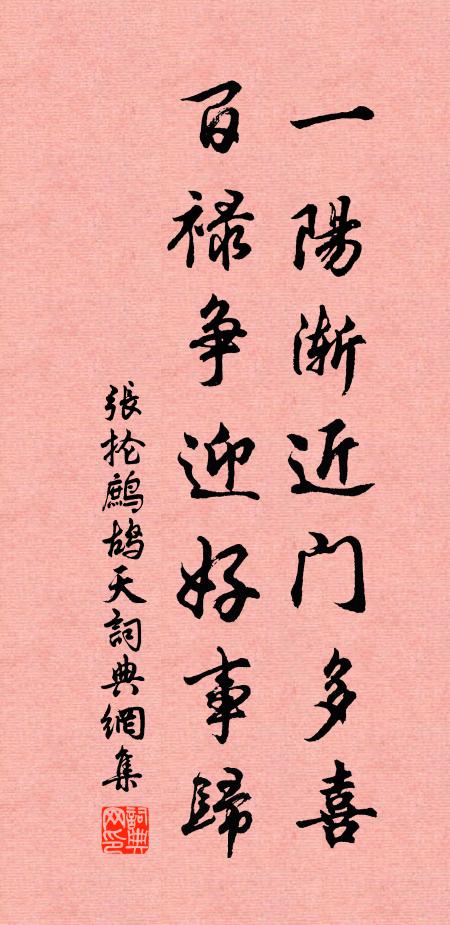 一陽漸近门多喜
百禄争迎好事歸
張抡鷓鴣天詞典網集
詞典网印